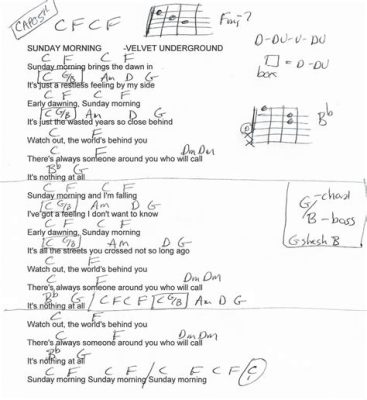 CAPO 5th C F C F Fmaj7
SUNDAY MORNING -VELVET UNDERGROUND
D-DU-U-DU
C F C F
Sunday morning brings the dawn in
= D-DU
box
C G/B Am D G
It's just a restless feeling by my side
C F C F
Early dawning, Sunday morning
C G/B Am D G
It's just the wasted years so close behind
Bb
C F
Watch out, the world's behind you
C F Dm Dm
There's always someone around you who will call
Bb G
It's nothing at all
C F C F
Sunday morning and I'm falling
C G/B Am D G
I've got a feeling I don't want to know
G/B -chord
-bass
C F C F
Early dawning, Sunday morning
C G/B Am D G
It's all the streets you crossed not so long ago
C F
Watch out, the world's behind you
C F Dm Dm
There's always someone around you who will call
Bb G / C F C F C G/B Am D G
It's nothing at all
C F
Watch out, the world's behind you
C F Dm Dm
There's always someone around you who will call
Bb G
It's nothing at all
C F C F / C F C F C
Sunday morning Sunday morning Sunday morning